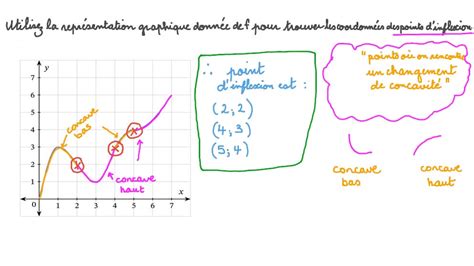 Utilisez la représentation graphique donnée de f pour trouver les coordonnées des points d'inflexion
y
7
6
5
4
3
2
1
0
1 2 3 4 5 6 7
x
concave
bas
concave
haut
∴ point
d'inflexion est :
(2;2)
(4;3)
(5;4)
"points où on rencontre
un changement
de concavité"
concave
bas
concave
haut